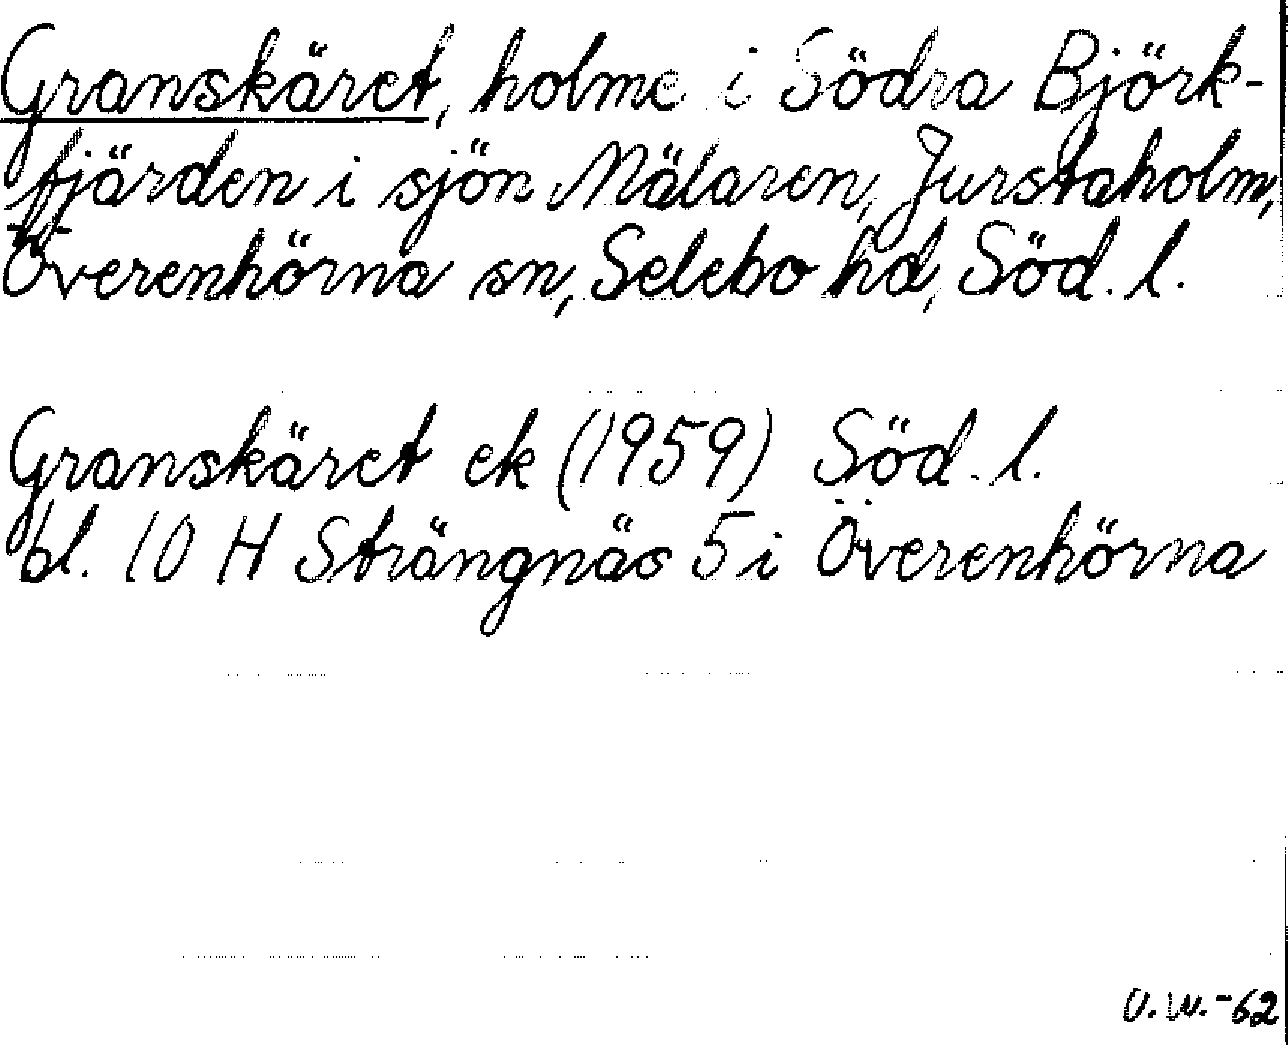 Granskäret, holme i Södra Björk-
fjärden i sjön Mälaren, Jurstaholm,
Överenhörna sn, Selebo hd, Söd. l.
Granskäret ek (1959) Söd. l.
bl. 10 H Strängnäs 5 i Överenhörna
O.W.-62